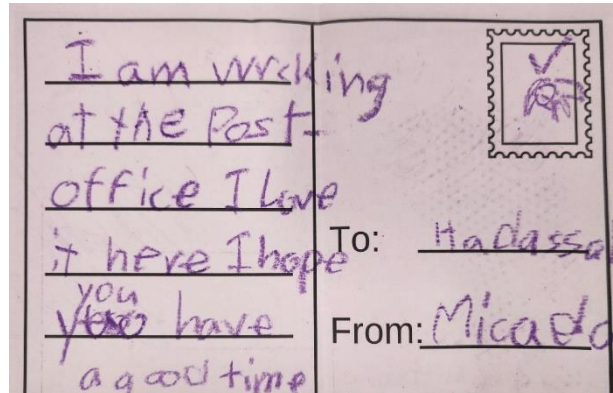 I am wrcking
at the Post-
office I Love
it here I hope
you
have
a good time
To: Hadassa
From: Micaela